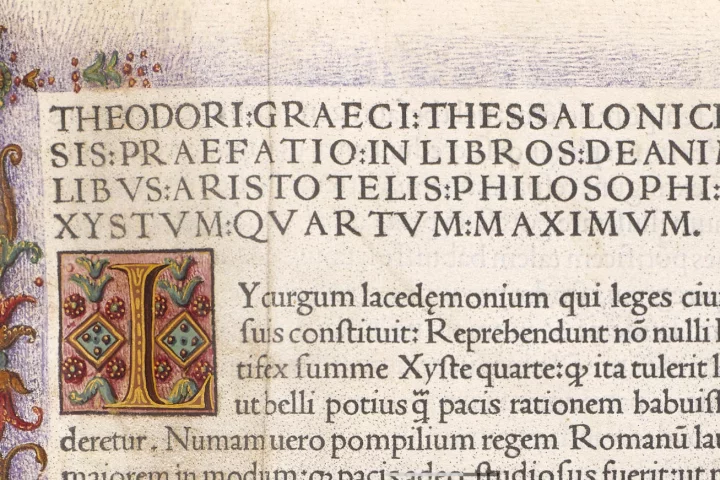 THEODORI:GRAECI:THESSALONICE
SIS:PRAEFATIO:IN LIBROS:DE ANI
LIBVS:ARISTOTELIS:PHILOSOPHI:
XYSTVM:QVARTVM:MAXIMVM.
LYcurgum lacedęmonium qui leges ciui
suis constituit: Reprehendunt nõ nulli
tifex summe Xyste quarte:ꝙ ita tulerit
ut belli potius q̃ pacis rationem babuiſ
deretur. Numam uero pompilium regem Romanũ lau
maiorem in modum:ꝙ pacis adeo studiosus fuerit:ut